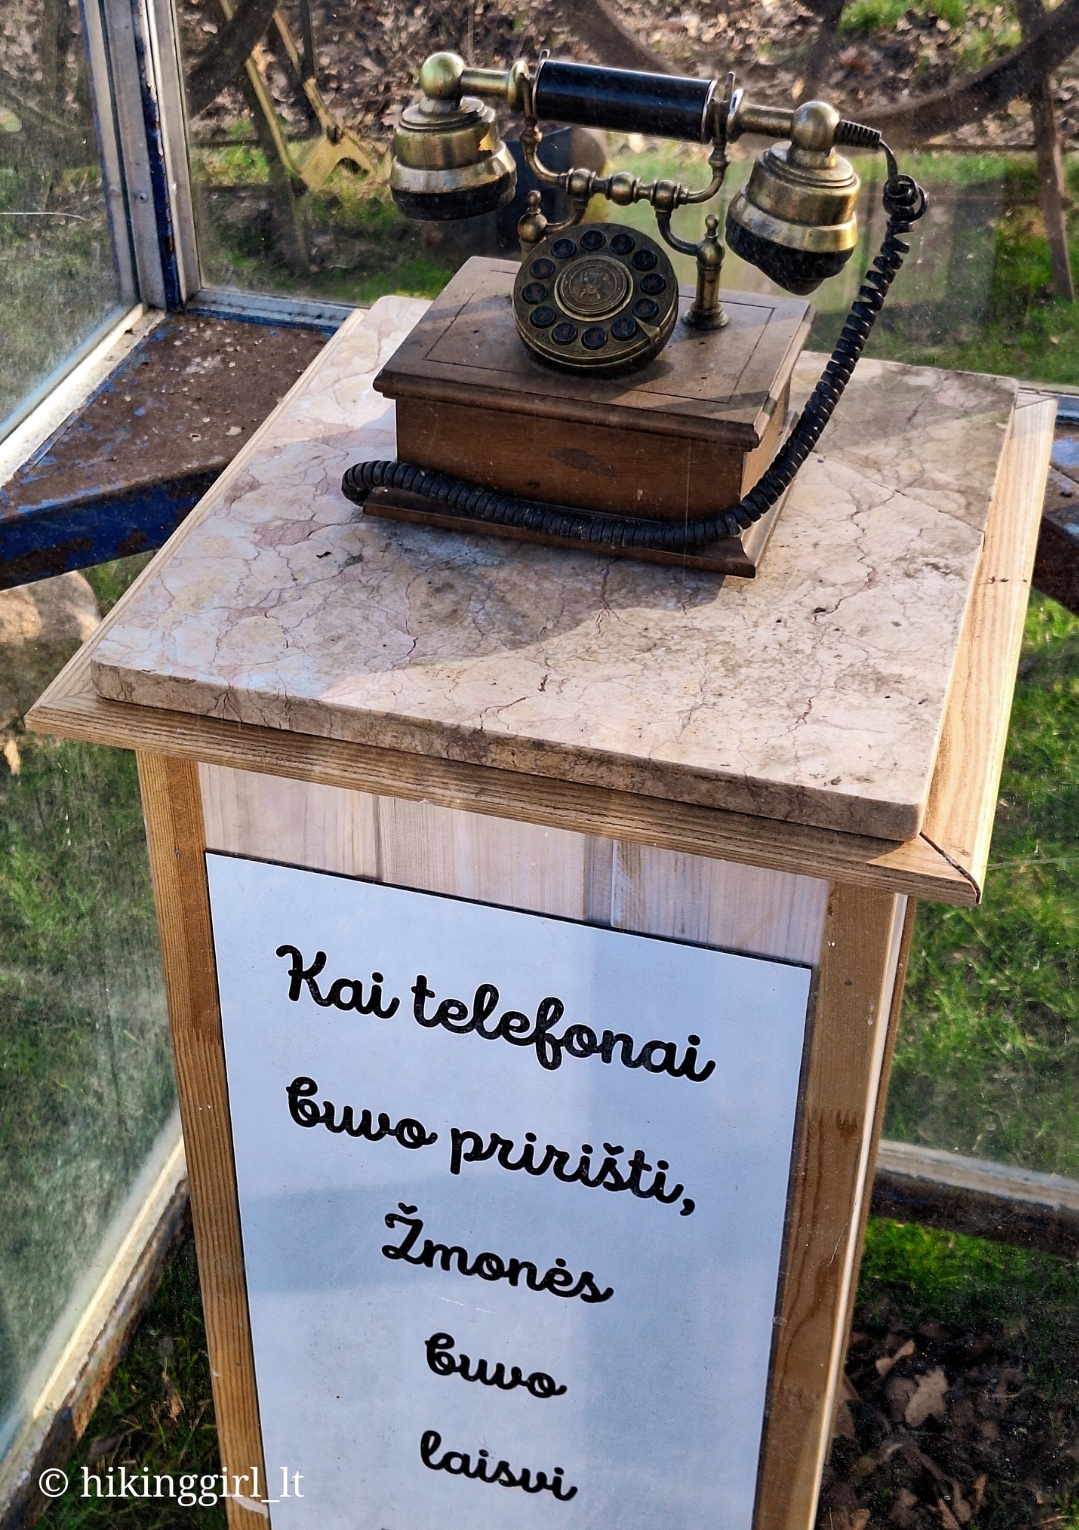 Kai telefonai
buvo pririšti,
Žmonės
buvo
laisvi
© hikinggirl_lt